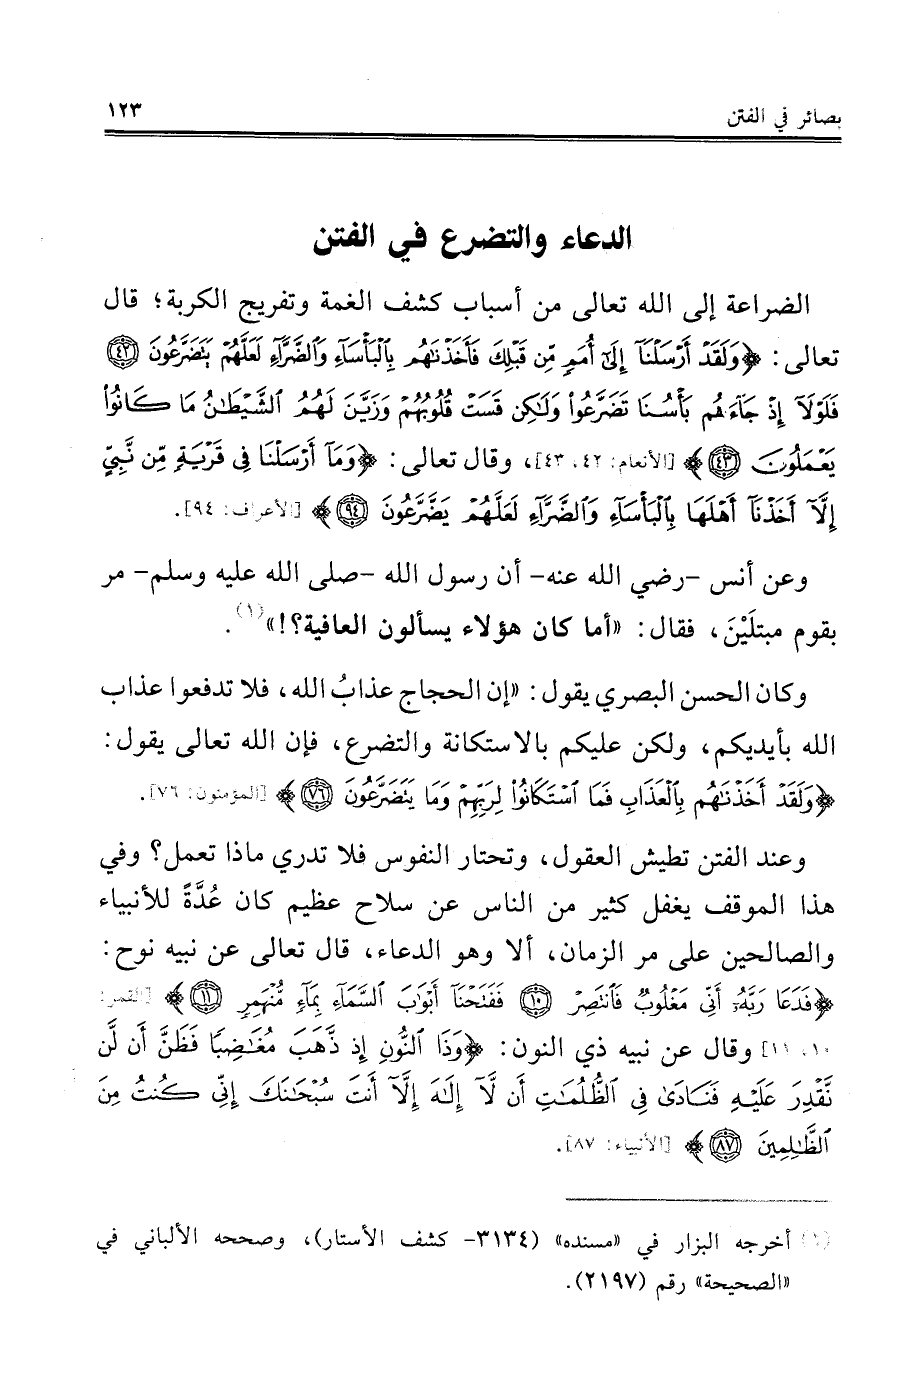 بصائر في الفتن
١٢٣
الدعاء والتضرع في الفتن
الضراعة إلى الله تعالى من أسباب كشف الغمة وتفريج الكربة؛ قال
تعالى: ﴿وَلَقَدْ أَرْسَلْنَآ إِلَىٰٓ أُمَمٍ مِّن قَبْلِكَ فَأَخَذْنَٰهُم بِٱلْبَأْسَآءِ وَٱلضَّرَّآءِ لَعَلَّهُمْ يَتَضَرَّعُونَ ٤٢
فَلَوْلَآ إِذْ جَآءَهُم بَأْسُنَا تَضَرَّعُوا۟ وَلَٰكِن قَسَتْ قُلُوبُهُمْ وَزَيَّنَ لَهُمُ ٱلشَّيْطَٰنُ مَا كَانُوا۟
يَعْمَلُونَ ٤٣﴾ [الأنعام: ٤٢، ٤٣]، وقال تعالى: ﴿وَمَآ أَرْسَلْنَا فِى قَرْيَةٍ مِّن نَّبِىٍّ
إِلَّآ أَخَذْنَآ أَهْلَهَا بِٱلْبَأْسَآءِ وَٱلضَّرَّآءِ لَعَلَّهُمْ يَضَّرَّعُونَ ٩٤﴾ [الأعراف: ٩٤].
وعن أنس -رضي الله عنه- أن رسول الله -صلى الله عليه وسلم- مر
بقوم مبتلَيْنَ، فقال: «أما كان هؤلاء يسألون العافية؟!»(١).
وكان الحسن البصري يقول: «إن الحجاج عذابُ الله، فلا تدفعوا عذاب
الله بأيديكم، ولكن عليكم بالاستكانة والتضرع، فإن الله تعالى يقول:
﴿وَلَقَدْ أَخَذْنَٰهُم بِٱلْعَذَابِ فَمَا ٱسْتَكَانُوا۟ لِرَبِّهِمْ وَمَا يَتَضَرَّعُونَ ٧٦﴾ [المؤمنون: ٧٦].
وعند الفتن تطيش العقول، وتحتار النفوس فلا تدري ماذا تعمل؟ وفي
هذا الموقف يغفل كثير من الناس عن سلاح عظيم كان عُدَّةً للأنبياء
والصالحين على مر الزمان، ألا وهو الدعاء، قال تعالى عن نبيه نوح:
﴿فَدَعَا رَبَّهُۥٓ أَنِّى مَغْلُوبٌ فَٱنتَصِرْ ١٠ فَفَتَحْنَآ أَبْوَٰبَ ٱلسَّمَآءِ بِمَآءٍ مُّنْهَمِرٍ ١١﴾ [القمر:
١٠، ١١] وقال عن نبيه ذي النون: ﴿وَذَا ٱلنُّونِ إِذ ذَّهَبَ مُغَٰضِبًا فَظَنَّ أَن لَّن
نَّقْدِرَ عَلَيْهِ فَنَادَىٰ فِى ٱلظُّلُمَٰتِ أَن لَّآ إِلَٰهَ إِلَّآ أَنتَ سُبْحَٰنَكَ إِنِّى كُنتُ مِنَ
ٱلظَّٰلِمِينَ ٨٧﴾ [الأنبياء: ٨٧].
(١) أخرجه البزار في «مسنده» (٣١٣٤- كشف الأستار)، وصححه الألباني في
«الصحيحة» رقم (٢١٩٧).